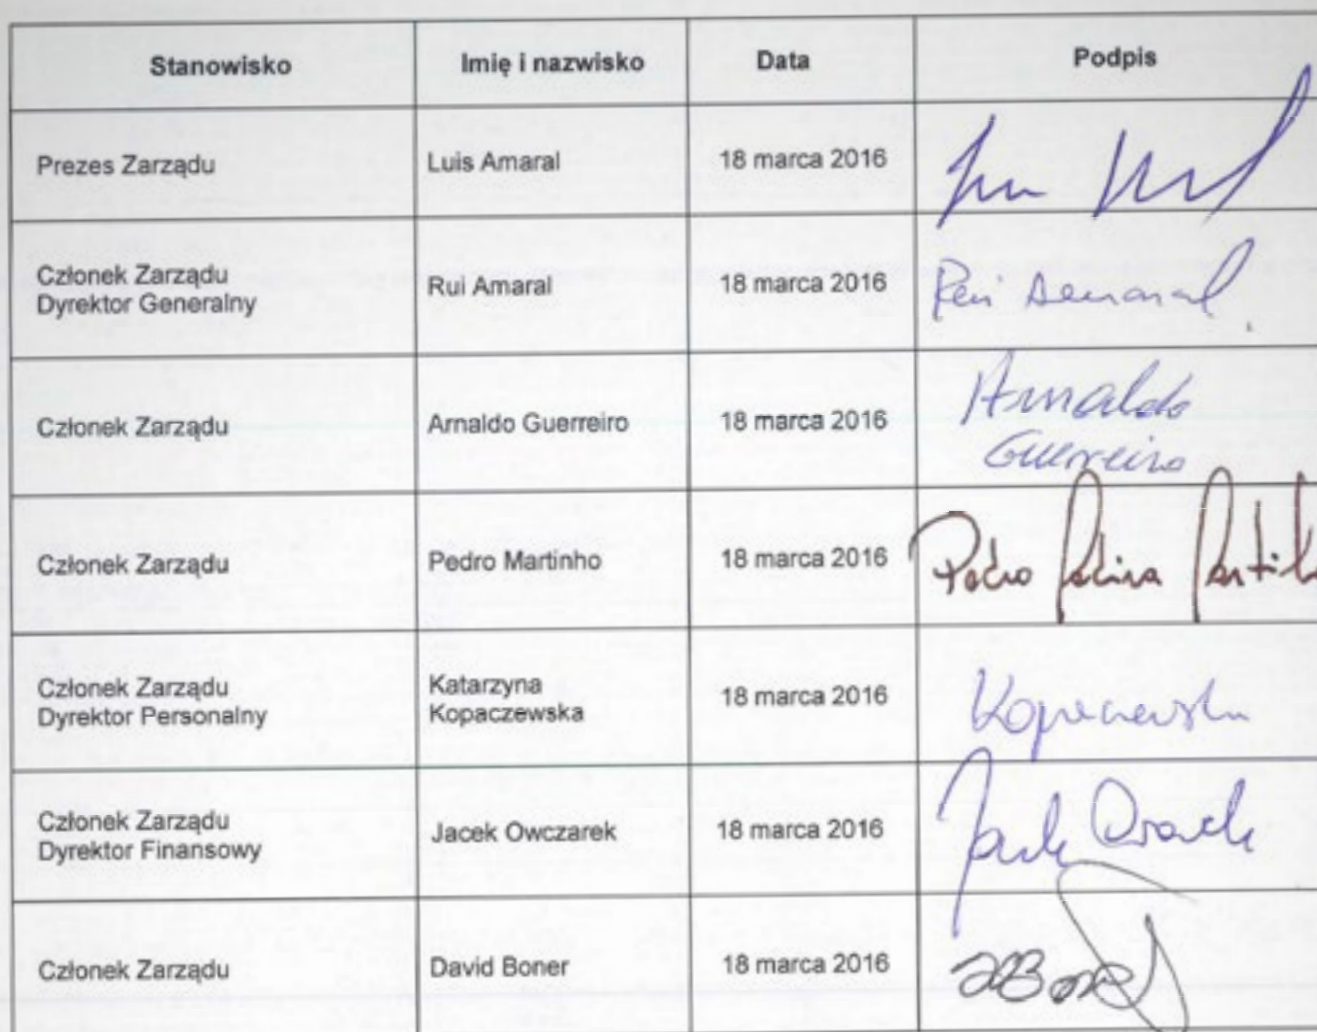 Stanowisko Imię i nazwisko Data Podpis
Prezes Zarządu Luis Amaral 18 marca 2016
Członek Zarządu
Dyrektor Generalny Rui Amaral 18 marca 2016 Rui Amaral
Członek Zarządu Arnaldo Guerreiro 18 marca 2016 Arnaldo
Guerreiro
Członek Zarządu Pedro Martinho 18 marca 2016 Pedro
Członek Zarządu
Dyrektor Personalny Katarzyna
Kopaczewska 18 marca 2016 Kopaczewska
Członek Zarządu
Dyrektor Finansowy Jacek Owczarek 18 marca 2016
Członek Zarządu David Boner 18 marca 2016